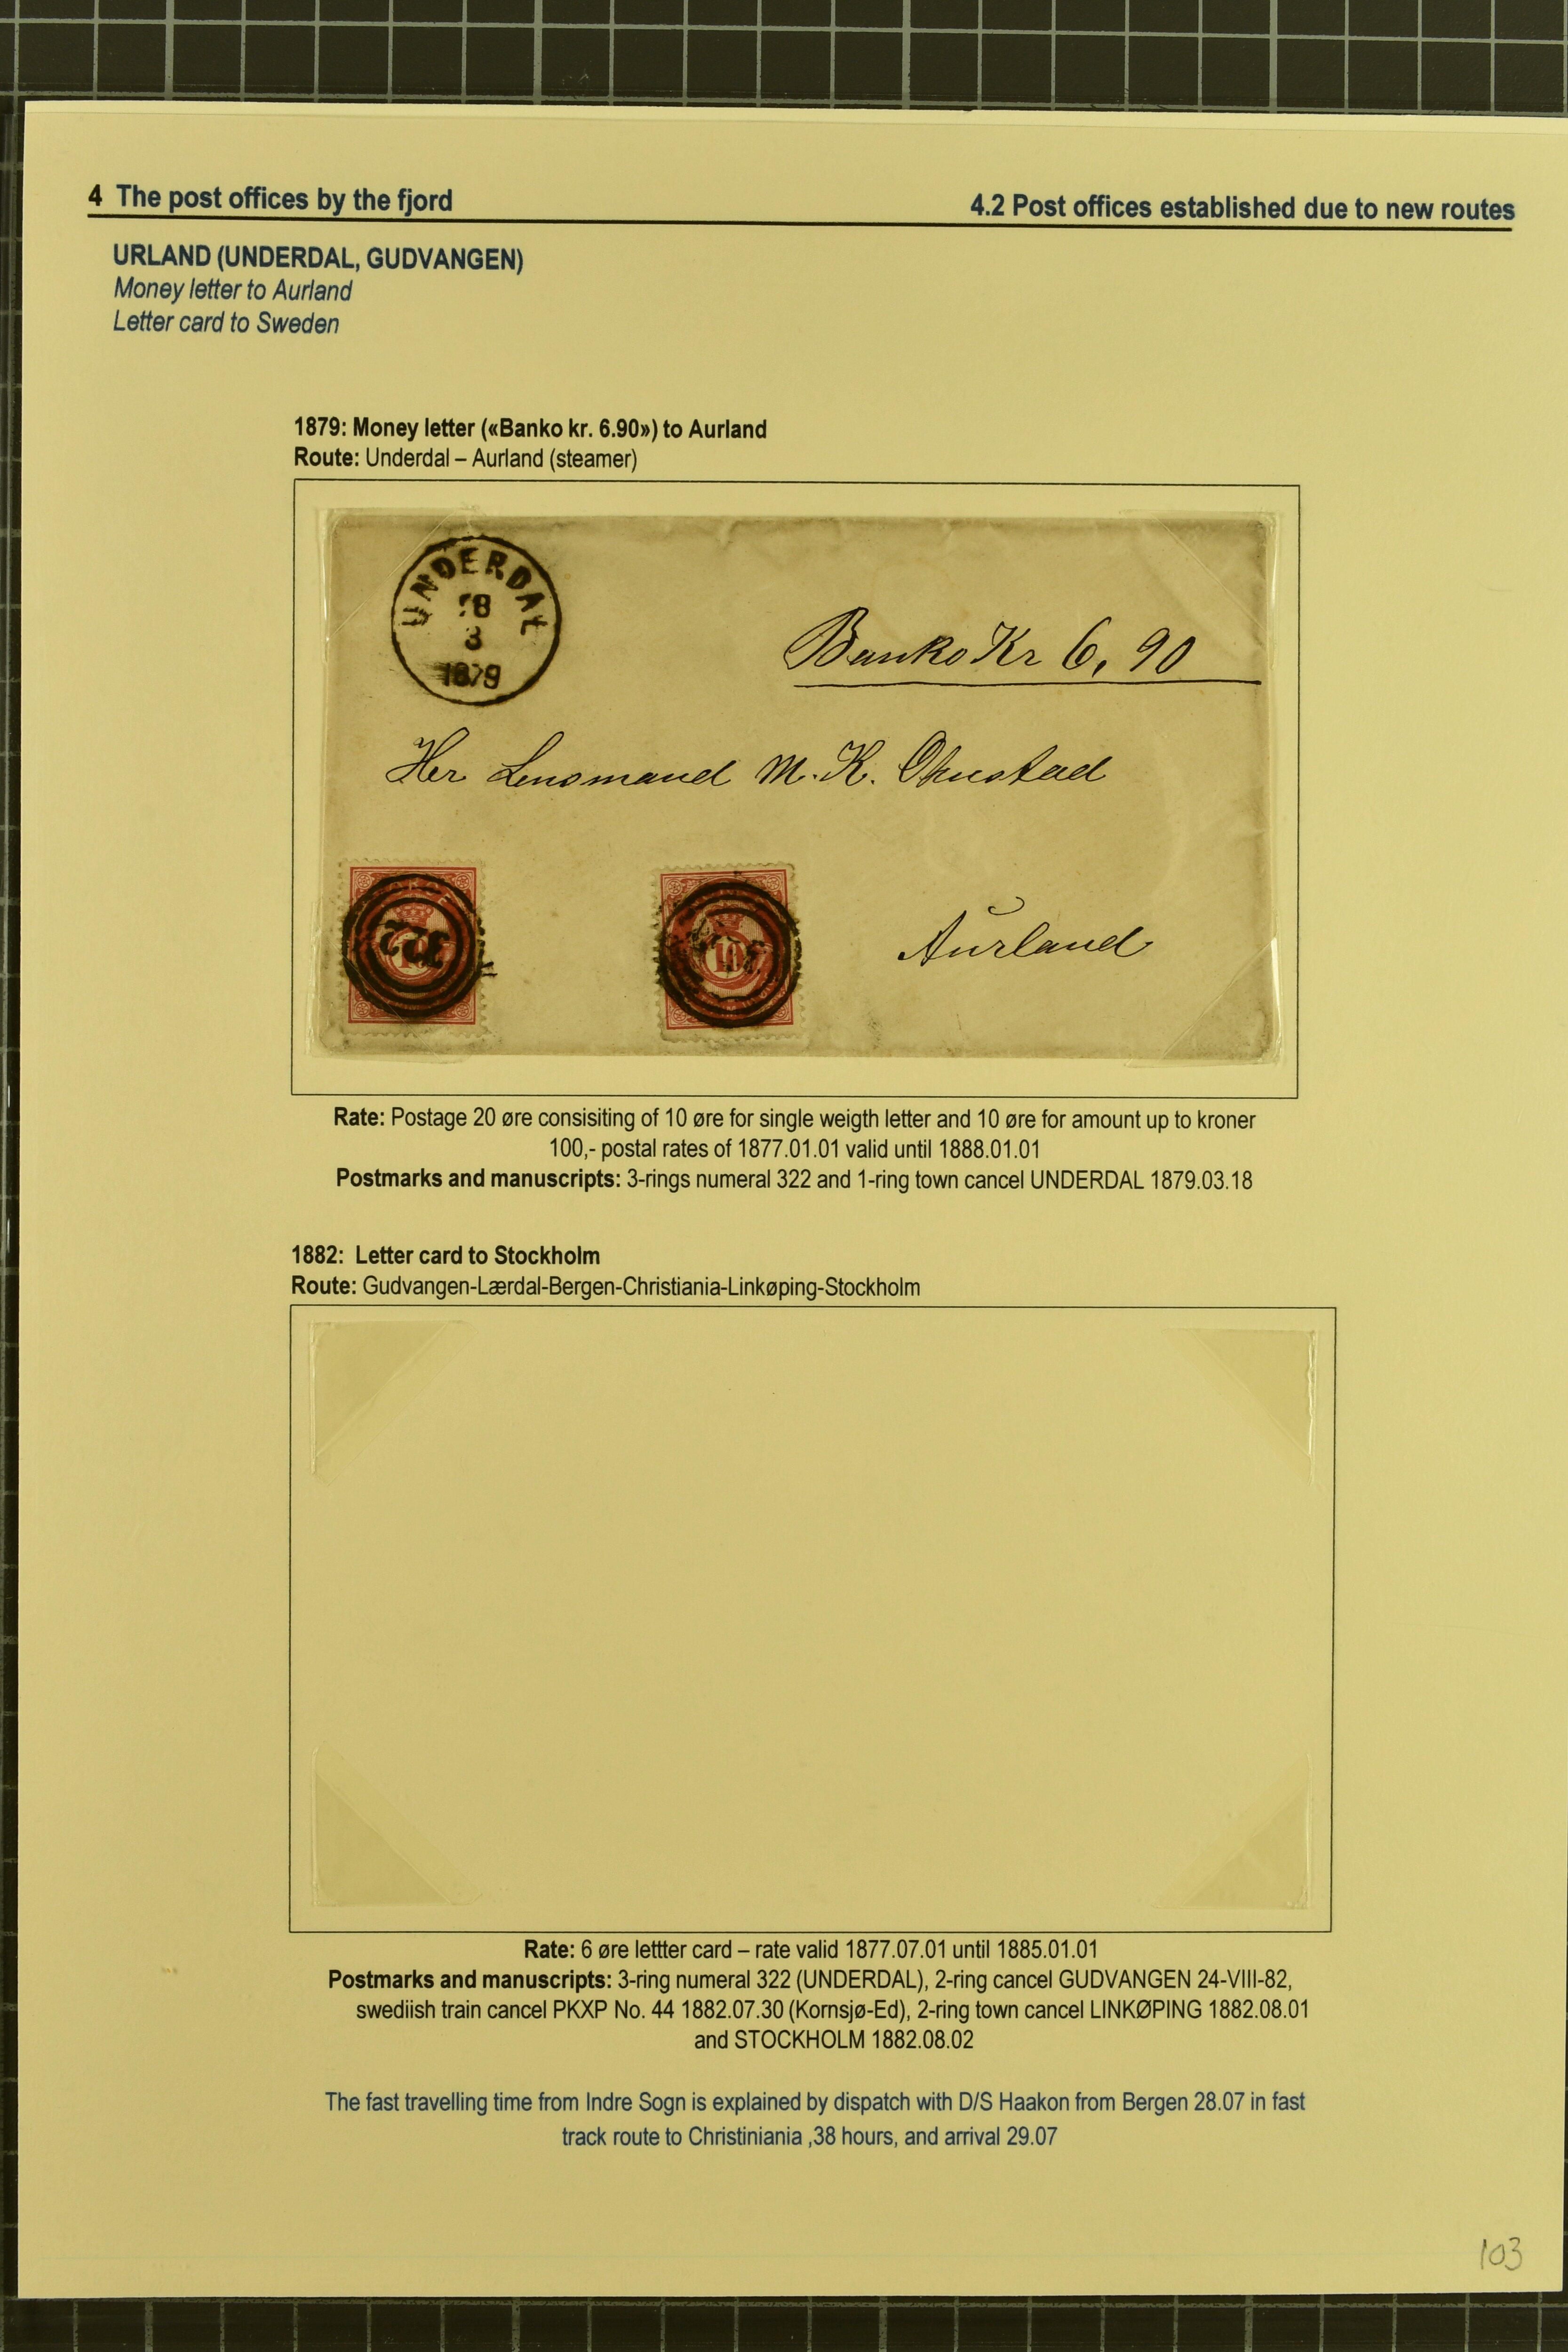 4 The post offices by the fjord
4.2 Post offices established due to new routes
URLAND (UNDERDAL, GUDVANGEN)
Money letter to Aurland
Letter card to Sweden
1879: Money letter («Banko kr. 6.90») to Aurland
Route: Underdal – Aurland (steamer)
UNDERDAL
18
3
1879
Banko Kr 6,90
Her Lensmand M. K. Ohnstad
322
10
10
Aurland
Rate: Postage 20 øre consisiting of 10 øre for single weigth letter and 10 øre for amount up to kroner
100,- postal rates of 1877.01.01 valid until 1888.01.01
Postmarks and manuscripts: 3-rings numeral 322 and 1-ring town cancel UNDERDAL 1879.03.18
1882: Letter card to Stockholm
Route: Gudvangen-Lærdal-Bergen-Christiania-Linkøping-Stockholm
Rate: 6 øre lettter card – rate valid 1877.07.01 until 1885.01.01
Postmarks and manuscripts: 3-ring numeral 322 (UNDERDAL), 2-ring cancel GUDVANGEN 24-VIII-82,
swediish train cancel PKXP No. 44 1882.07.30 (Kornsjø-Ed), 2-ring town cancel LINKØPING 1882.08.01
and STOCKHOLM 1882.08.02
The fast travelling time from Indre Sogn is explained by dispatch with D/S Haakon from Bergen 28.07 in fast
track route to Christiniania ,38 hours, and arrival 29.07
103